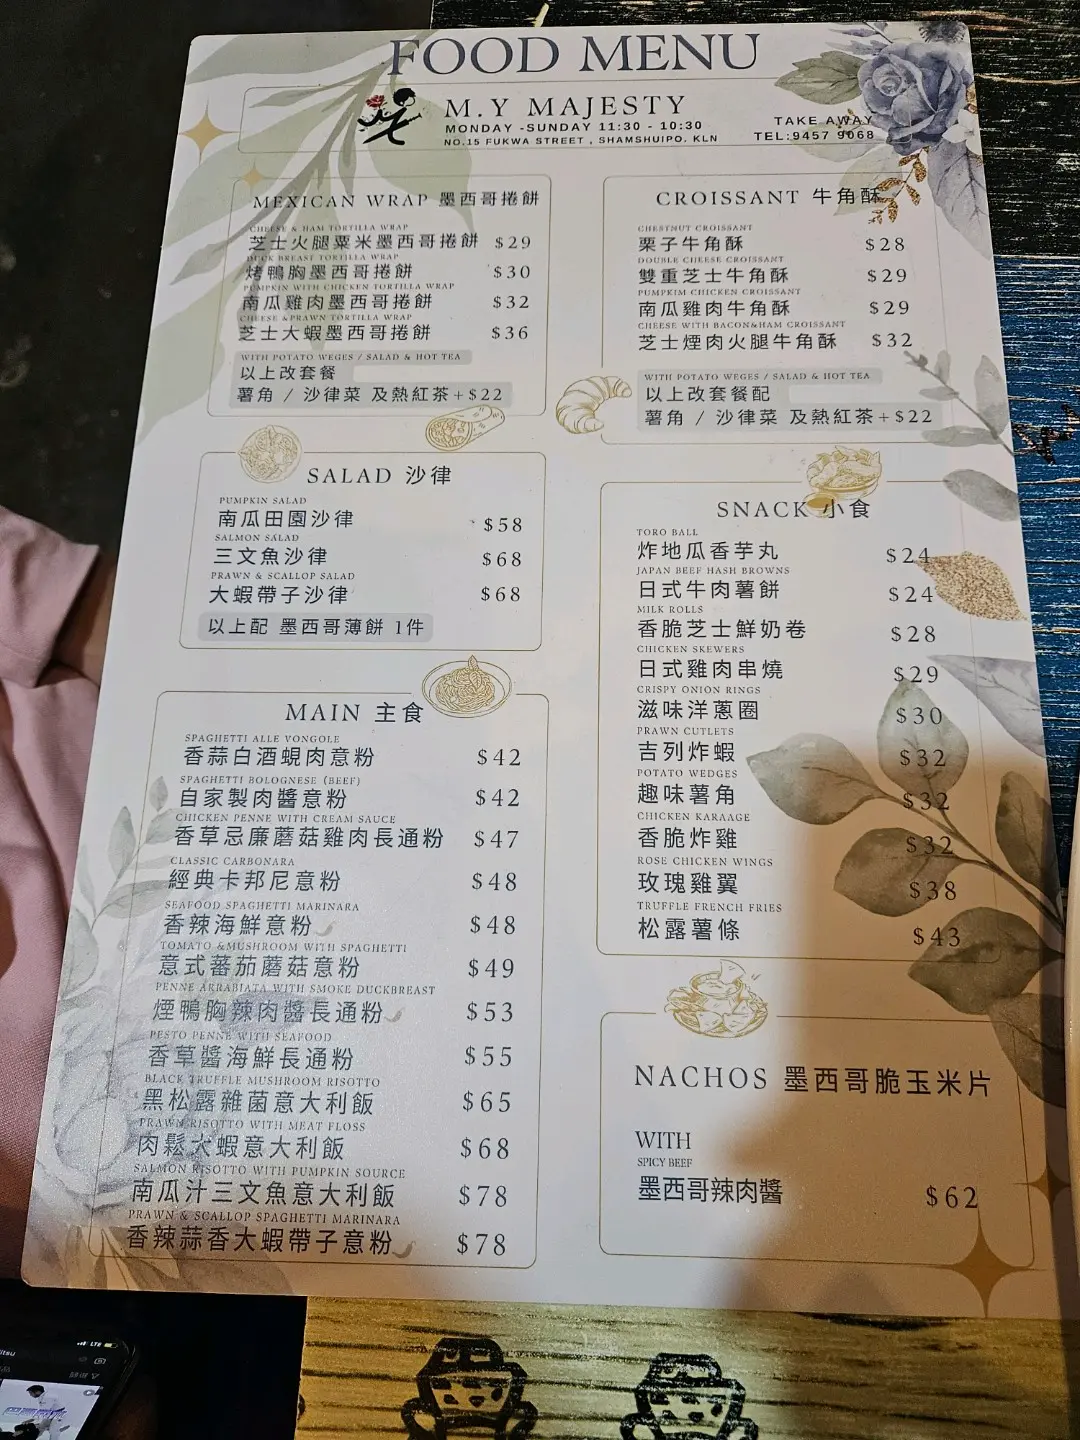 FOOD MENU
M.Y MAJESTY
MONDAY -SUNDAY 11:30 - 10:30
NO.15 FUKWA STREET , SHAMSHUIPO. KLN
TAKE AWAY
TEL:9457 9068
MEXICAN WRAP 墨西哥捲餅
CHEESE & HAM TORTILLA WRAP
芝士火腿粟米墨西哥捲餅 $29
DUCK BREAST TORTILLA WRAP
烤鴨胸墨西哥捲餅 $30
PUMPKIN WITH CHICKEN TORTILLA WRAP
南瓜雞肉墨西哥捲餅 $32
CHEESE &PRAWN TORTILLA WRAP
芝士大蝦墨西哥捲餅 $36
WITH POTATO WEGES / SALAD & HOT TEA
以上改套餐
薯角 / 沙律菜 及熱紅茶+$22
SALAD 沙律
PUMPKIN SALAD
南瓜田園沙律 $58
SALMON SALAD
三文魚沙律 $68
PRAWN & SCALLOP SALAD
大蝦帶子沙律 $68
以上配 墨西哥薄餅 1件
MAIN 主食
SPAGHETTI ALLE VONGOLE
香蒜白酒蜆肉意粉 $42
SPAGHETTI BOLOGNESE (BEEF)
自家製肉醬意粉 $42
CHICKEN PENNE WITH CREAM SAUCE
香草忌廉蘑菇雞肉長通粉 $47
CLASSIC CARBONARA
經典卡邦尼意粉 $48
SEAFOOD SPAGHETTI MARINARA
香辣海鮮意粉 $48
TOMATO &MUSHROOM WITH SPAGHETTI
意式蕃茄蘑菇意粉 $49
PENNE ARRABIATA WITH SMOKE DUCKBREAST
煙鴨胸辣肉醬長通粉 $53
PESTO PENNE WITH SEAFOOD
香草醬海鮮長通粉 $55
BLACK TRUFFLE MUSHROOM RISOTTO
黑松露雜菌意大利飯 $65
PRAWN RISOTTO WITH MEAT FLOSS
肉鬆大蝦意大利飯 $68
SALMON RISOTTO WITH PUMPKIN SOURCE
南瓜汁三文魚意大利飯 $78
PRAWN & SCALLOP SPAGHETTI MARINARA
香辣蒜香大蝦帶子意粉 $78
CROISSANT 牛角酥
CHESTNUT CROISSANT
栗子牛角酥 $28
DOUBLE CHEESE CROISSANT
雙重芝士牛角酥 $29
PUMPKIM CHICKEN CROISSANT
南瓜雞肉牛角酥 $29
CHEESE WITH BACON&HAM CROISSANT
芝士煙肉火腿牛角酥 $32
WITH POTATO WEGES / SALAD & HOT TEA
以上改套餐配
薯角 / 沙律菜 及熱紅茶+$22
SNACK 小食
TORO BALL
炸地瓜香芋丸 $24
JAPAN BEEF HASH BROWNS
日式牛肉薯餅 $24
MILK ROLLS
香脆芝士鮮奶卷 $28
CHICKEN SKEWERS
日式雞肉串燒 $29
CRISPY ONION RINGS
滋味洋蔥圈 $30
PRAWN CUTLETS
吉列炸蝦 $32
POTATO WEDGES
趣味薯角 $32
CHICKEN KARAAGE
香脆炸雞 $32
ROSE CHICKEN WINGS
玫瑰雞翼 $38
TRUFFLE FRENCH FRIES
松露薯條 $43
NACHOS 墨西哥脆玉米片
WITH
SPICY BEEF
墨西哥辣肉醬 $62